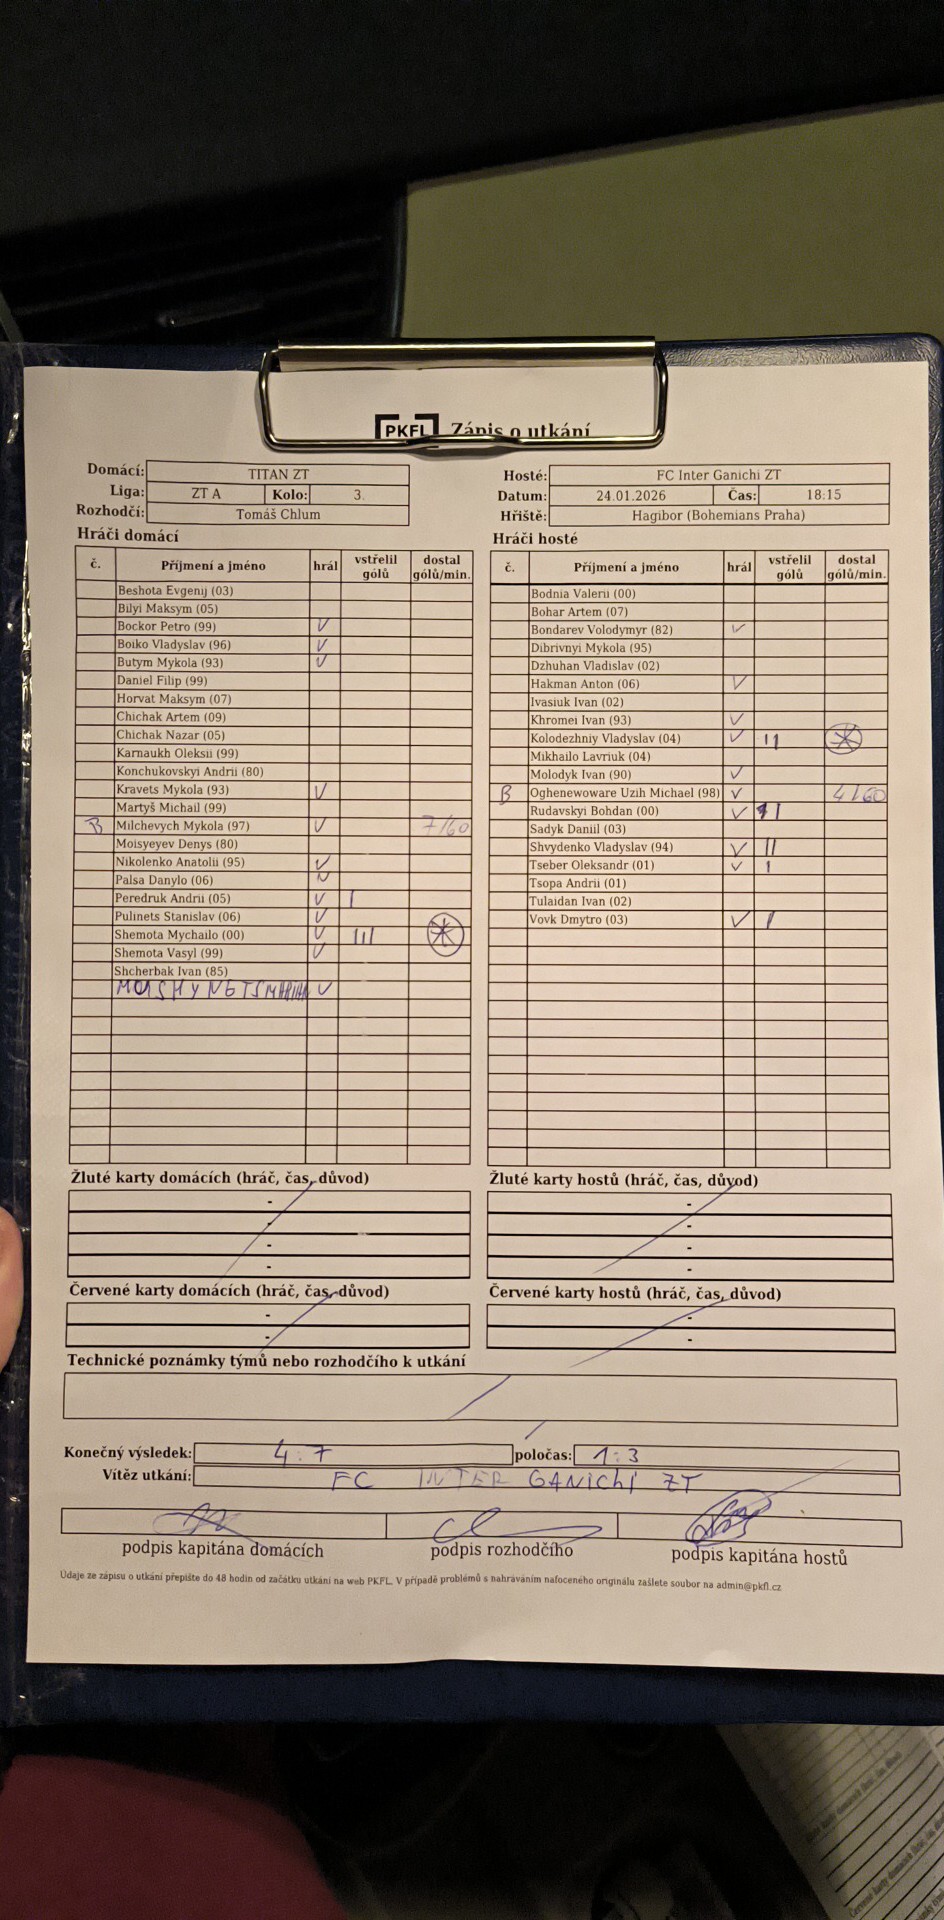 PKFL Zápis o utkání
Domácí: TITAN ZT
Liga: ZT A Kolo: 3.
Rozhodčí: Tomáš Chlum
Hosté: FC Inter Ganichi ZT
Datum: 24.01.2026 Čas: 18:15
Hřiště: Hagibor (Bohemians Praha)
Hráči domácí
č. Příjmení a jméno hrál vstřelil gólů dostal gólů/min.
Beshota Evgenij (03)
Bilyi Maksym (05)
Bockor Petro (99) V
Boiko Vladyslav (96) V
Butym Mykola (93) V
Daniel Filip (99)
Horvat Maksym (07)
Chichak Artem (09)
Chichak Nazar (05)
Karnaukh Oleksii (99)
Konchukovskyi Andrii (80)
Kravets Mykola (93) V
Martyš Michail (99)
B Milchevych Mykola (97) V 7/60
Moisyeyev Denys (80)
Nikolenko Anatolii (95) V
Palsa Danylo (06) V
Peredruk Andrii (05) V I
Pulinets Stanislav (06) V
Shemota Mychailo (00) V III *
Shemota Vasyl (99) V
Shcherbak Ivan (85)
V
Hráči hosté
č. Příjmení a jméno hrál vstřelil gólů dostal gólů/min.
Bodnia Valerii (00)
Bohar Artem (07)
Bondarev Volodymyr (82) V
Dibrivnyi Mykola (95)
Dzhuhan Vladislav (02)
Hakman Anton (06) V
Ivasiuk Ivan (02)
Khromei Ivan (93) V
Kolodezhniy Vladyslav (04) V II *
Mikhailo Lavriuk (04)
Molodyk Ivan (90) V
B Oghenewoware Uzih Michael (98) V 4/60
Rudavskyi Bohdan (00) V
Sadyk Daniil (03)
Shvydenko Vladyslav (94) V II
Tseber Oleksandr (01) V I
Tsopa Andrii (01)
Tulaidan Ivan (02)
Vovk Dmytro (03) V I
Žluté karty domácích (hráč, čas, důvod)
-
-
-
-
Žluté karty hostů (hráč, čas, důvod)
-
-
-
-
Červené karty domácích (hráč, čas, důvod)
-
-
Červené karty hostů (hráč, čas, důvod)
-
-
Technické poznámky týmů nebo rozhodčího k utkání
Konečný výsledek: 4:7 poločas: 1:3
Vítěz utkání: FC INTER GANICHI ZT
podpis kapitána domácích podpis rozhodčího podpis kapitána hostů
Údaje ze zápisu o utkání přepište do 48 hodin od začátku utkání na web PKFL. V případě problémů s nahráváním nafoceného originálu zašlete soubor na admin@pkfl.cz